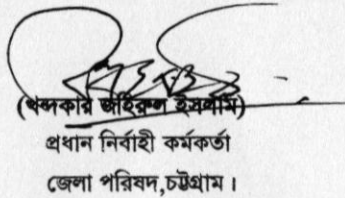 (খন্দকার জহিরুল ইসলাম)
প্রধান নির্বাহী কর্মকর্তা
জেলা পরিষদ,চট্টগ্রাম।